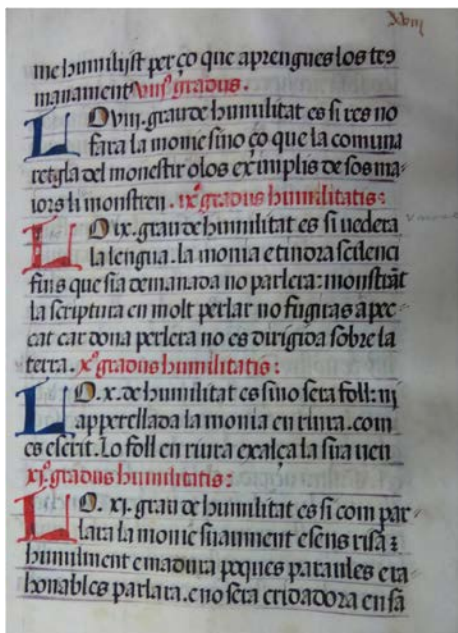 xviii
me humilijst per ço que aprengues los tes
manament viiiº gradus.
LO viii. grau de humilitat es si res no
fara la monie sino ço que la comuna
retgla del monestir o los eximplis de sos ma-
iors li monstren. ixº gradus humilitatis:
LO ix. grau de humilitat es si uedera
la lengua. la monia e tinora scilenci
fins que sia demanada no parlera: monstrāt
la scriptura en molt perlar no fugiras a pec-
cat car dona perlera no es dirigida sobre la
terra. xº gradus humilitatis:
LO. x. de humilitat es si no sera foll: ni
apperellada la monia en riura. com
es escrit. Lo foll en riura exalça la sua ueu
xiº. gradus humilitatis:
LO. xi. grau de humilitat es si com par-
lara la monie suaument e sens risa ⁊
humilment e madura poques paraules e ra-
honables parlara. e no sera cridadora en sa